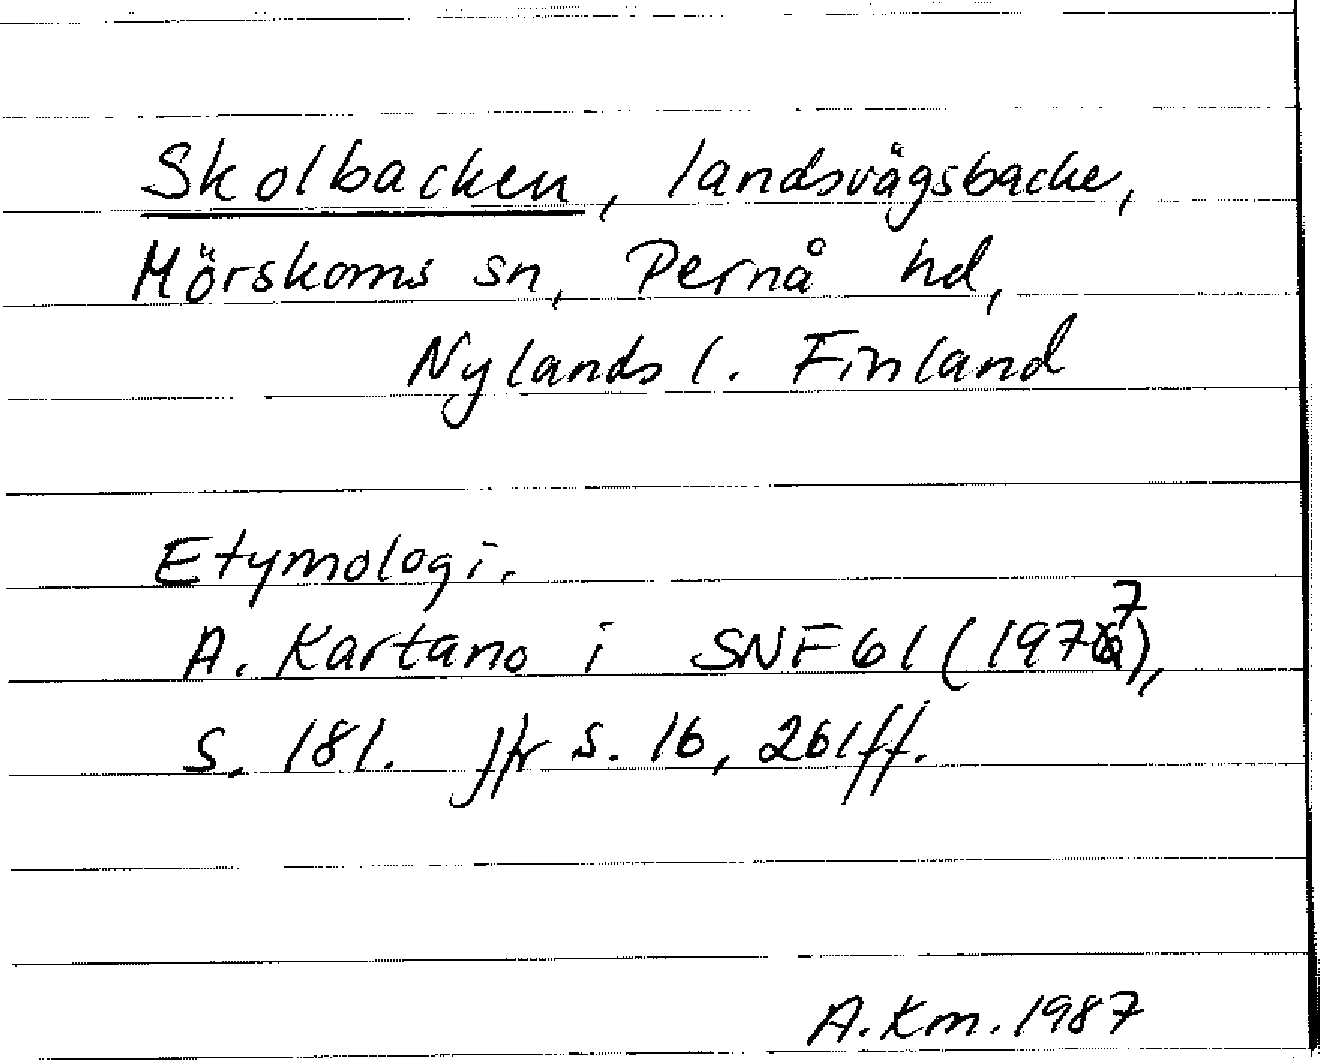 Skolbacken, landsvägsbacke,
Mörskoms sn, Pernå hd,
Nylands l. Finland
Etymologi.
A. Kartano i SNF 61 (1977),
s. 181. Jfr s. 16, 261ff.
A.Km. 1987